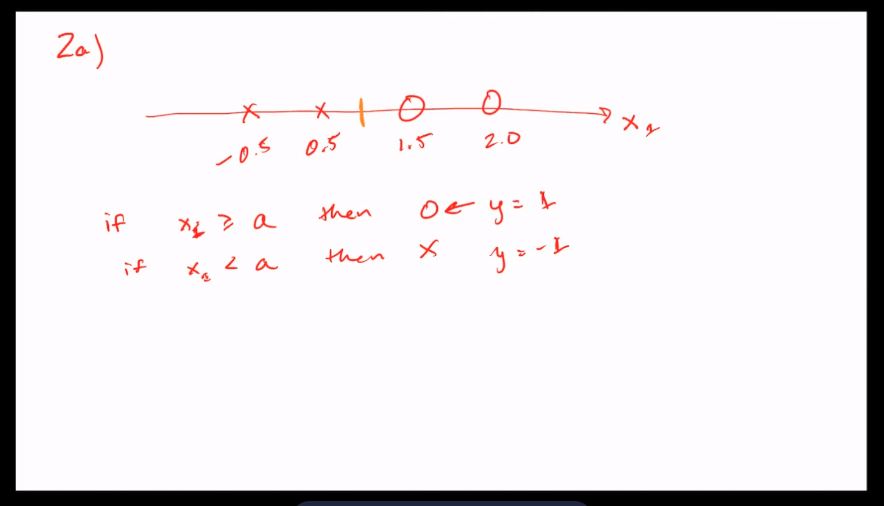 2a)
x₁
-0.5 0.5 1.5 2.0
if x₁ ≥ a then O ← y = 1
if x₁ < a then X y = -1